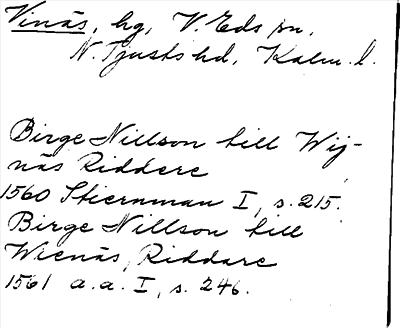 Vinäs, hg, V. Eds sn,
N. Tjusts hd, Kalm. l.
Birge Nillson till Wij-
näs Riddere
1560 Stiernman I, s. 215.
Birge Nillson till
Wienäs, Riddare
1561 a. a. I, s. 246.